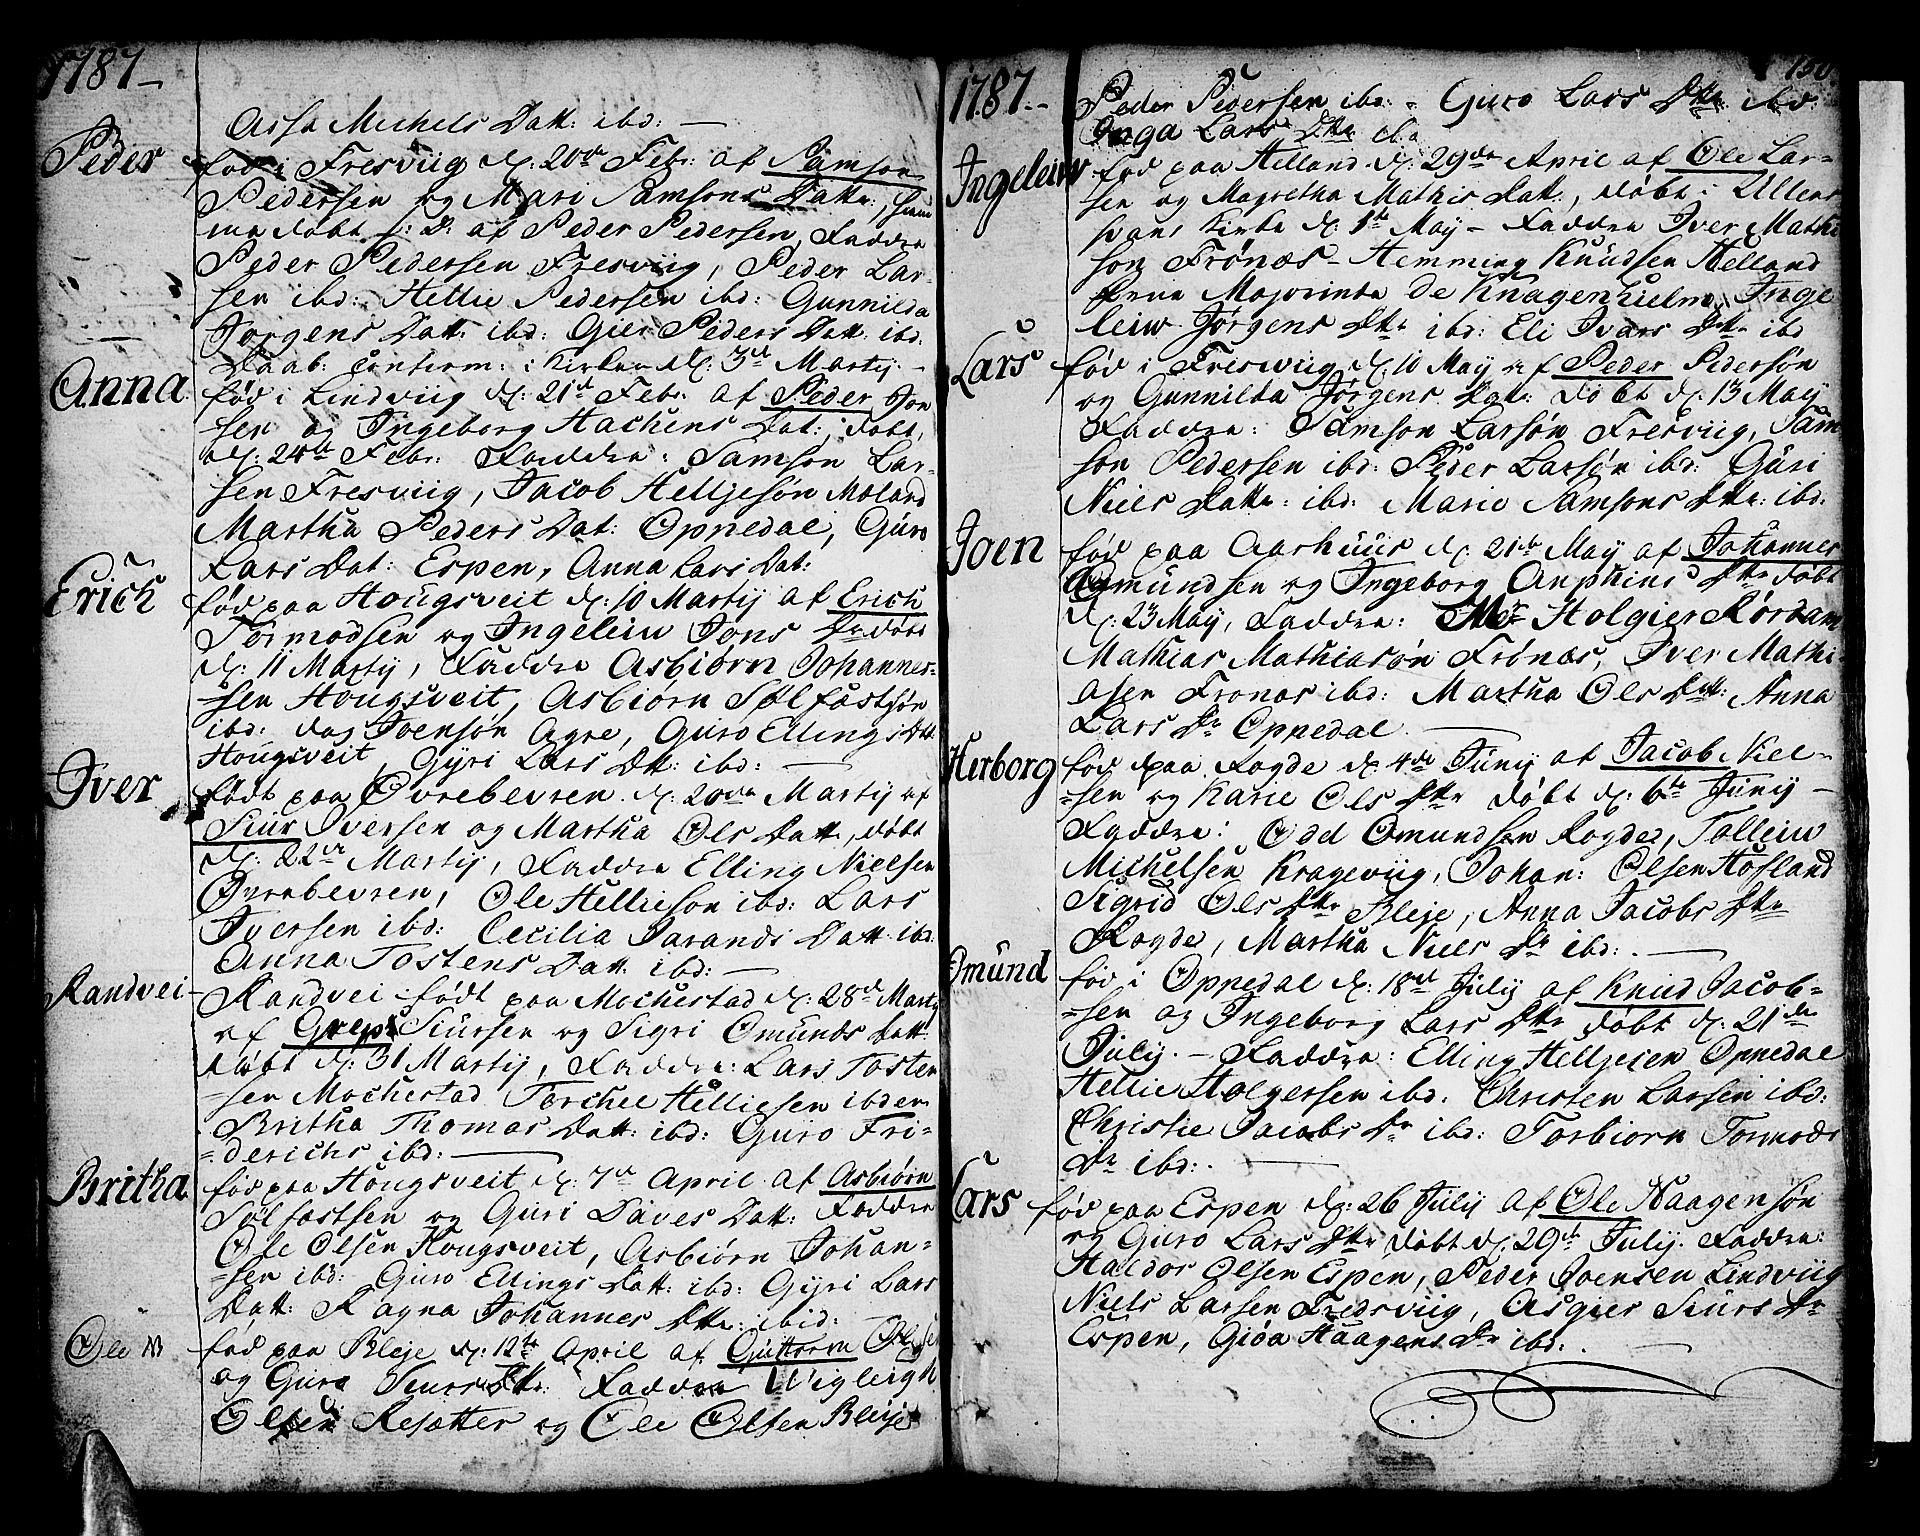 1787.-
Assa Michels Datt: ibd: —
Peder
fød i Fresviig d. 20de Febr: af Samson
Pedersen og Mari Samsons Dattr,
ma døbt af Peder Pedersen, Faddre
Peder Pedersen Fresviig, Peder Lar-
sen ibd: Hellie Pedersen ibd: Gunnilda
Jørgens Datt. ibd: Gier Peders Datt. ibd.
Daab: confirm: i Kirken d. 3d Martij. -
Anna
fød i Lindviig d. 21d Febr. af Peder Jon
sen og Ingeborg Hachens Dat: døbt,
d. 24de Febr. Faddre: Samson Lar-
sen Fresviig, Jacob Helljesøn Moland
Martha Peders Dat: Oppedal, Guro
Lars Dat: Espen, Anna Lars Dat:
Erich
fød paa Hougsveit d. 10 Martij af Erich
Tormodsen og Ingeleiw Jons Dr døbt
d. 11 Martij, Faddre Asbiørn Johannes-
sen Hougsveit, Asbiørn Sølfastsøn
ibd: dag Joensøn Agre, Guro Ellings Dtt.
Hougsveit, Gyri Lars Dtt: ibd: —
Iver
født paa Øvrebevren d. 20de Martij af
Siur Iversen og Martha Ols Datt, døbt
d. 22de Martij, Faddre Elling Nielsen
Øvrebevren, Ole Helliesøn ibd: Lars
Iversen ibd: Cecilia Tarands Datt. ibd:
Anna Tostens Datt. ibd: —
Randvei -
Randvei født paa Mochestad d. 28d Martij
af Siursen og Sigri Omunds Datt:
døbt d. 31 Martij, Faddre: Lars Tosten
=sen Mochestad Torchel Helliesen ibdem
Britha Thomas Datt: ibd: Guro Fri-
=derichs ibd: —
Britha
fød paa Hougsveit d. 7de April af Asbiørn
Sølfastsen og Guri Daves Datt: Faddre
Ole Olsen Hougsveit, Asbiørn Johan=
=sen ibd: Guro Ellings Datt: ibd: Gyri Lars
Datt: Ragna Johannes Dttr: ibid:
Ole
fød paa Bleje d. 12te April af Guttorm Olsen
og Guro Siurs Dtr: Faddre Wigleigh
Olsen Resætter og Ole Olsen Bleje
1787.-
150
Peder Pedersen ibd: - Guro Lars Dttr ibd:
Inga Lars Dttr ibd
Ingeleiw
fød paa Helland d. 29de April af Ole Lar=
sen og Magretha Mathis Datt., døbt i Ullens
svans Kirke d. 1te May - Faddre Iver Mathi
søn Frønæs - Hemming Knudsen Helland
Frue Majorinde De Knagenhielm, Inge
leiw Jørgens Dttr ibd: Eli Ivars Dttr ibd
Lars
fød i Fresviig d. 10 May af Peder Pedersøn
og Gunnilda Jørgens Dttr døbt d. 13 May
Faddre: Samson Larsøn Fresviig, Sam
son Pedersen ibd: Peder Larsøn ibd: Guri
Niels Dattr: ibd: Marie Samsons Dttr: ibd.
Joen
fød paa Aarhuus d. 21de May af Johannes
Aamundsen og Ingeborg Anphins Dttr døbt
d. 23 May, Faddre: Mr Holgier Rørdam
Mathias Mathiasøn Frønæs, Iver Mathi-
asen Fronæs ibd: Martha Ols Datt: Anna
Lars Dr Oppedal —
Herborg
fød paa Rogde d. 4de Junij af Jacob Niel=
=sen og Karie Ols Dttr døbt d. 6te Junij -
Faddre: Odd Omundsen Rogde, Tolleiw
Michelsen Krageviig, Johan: Olsen Hofland
Sigrid Ols Dttr Bleje, Anna Jacobs Dttr
Rogde, Martha Niels Dr ibd: —
Omund
fød i Oppedal d. 18de Julij af Knud Jacob=
=sen og Ingeborg Lars Dttr døbt d. 21de
Julij. - Faddre: Elling Helljesen Oppedal
Hellie Holgersen ibd: Christen Larsen ibd:
Christie Jacobs Dr ibd: Torbiorn Tormods
Dr ibd: —
Lars
fød paa Espen d. 26 Julij af Ole Haagensøn
og Guro Lars Dttr døbt d. 29de Julij. Faddre:
Haldor Olsen Espen, Peder Joensen Lindviig
Niels Larsen Fredsviig, Asgier Siurs Dr
Espen, Giøa Haagens Dr ibd: —